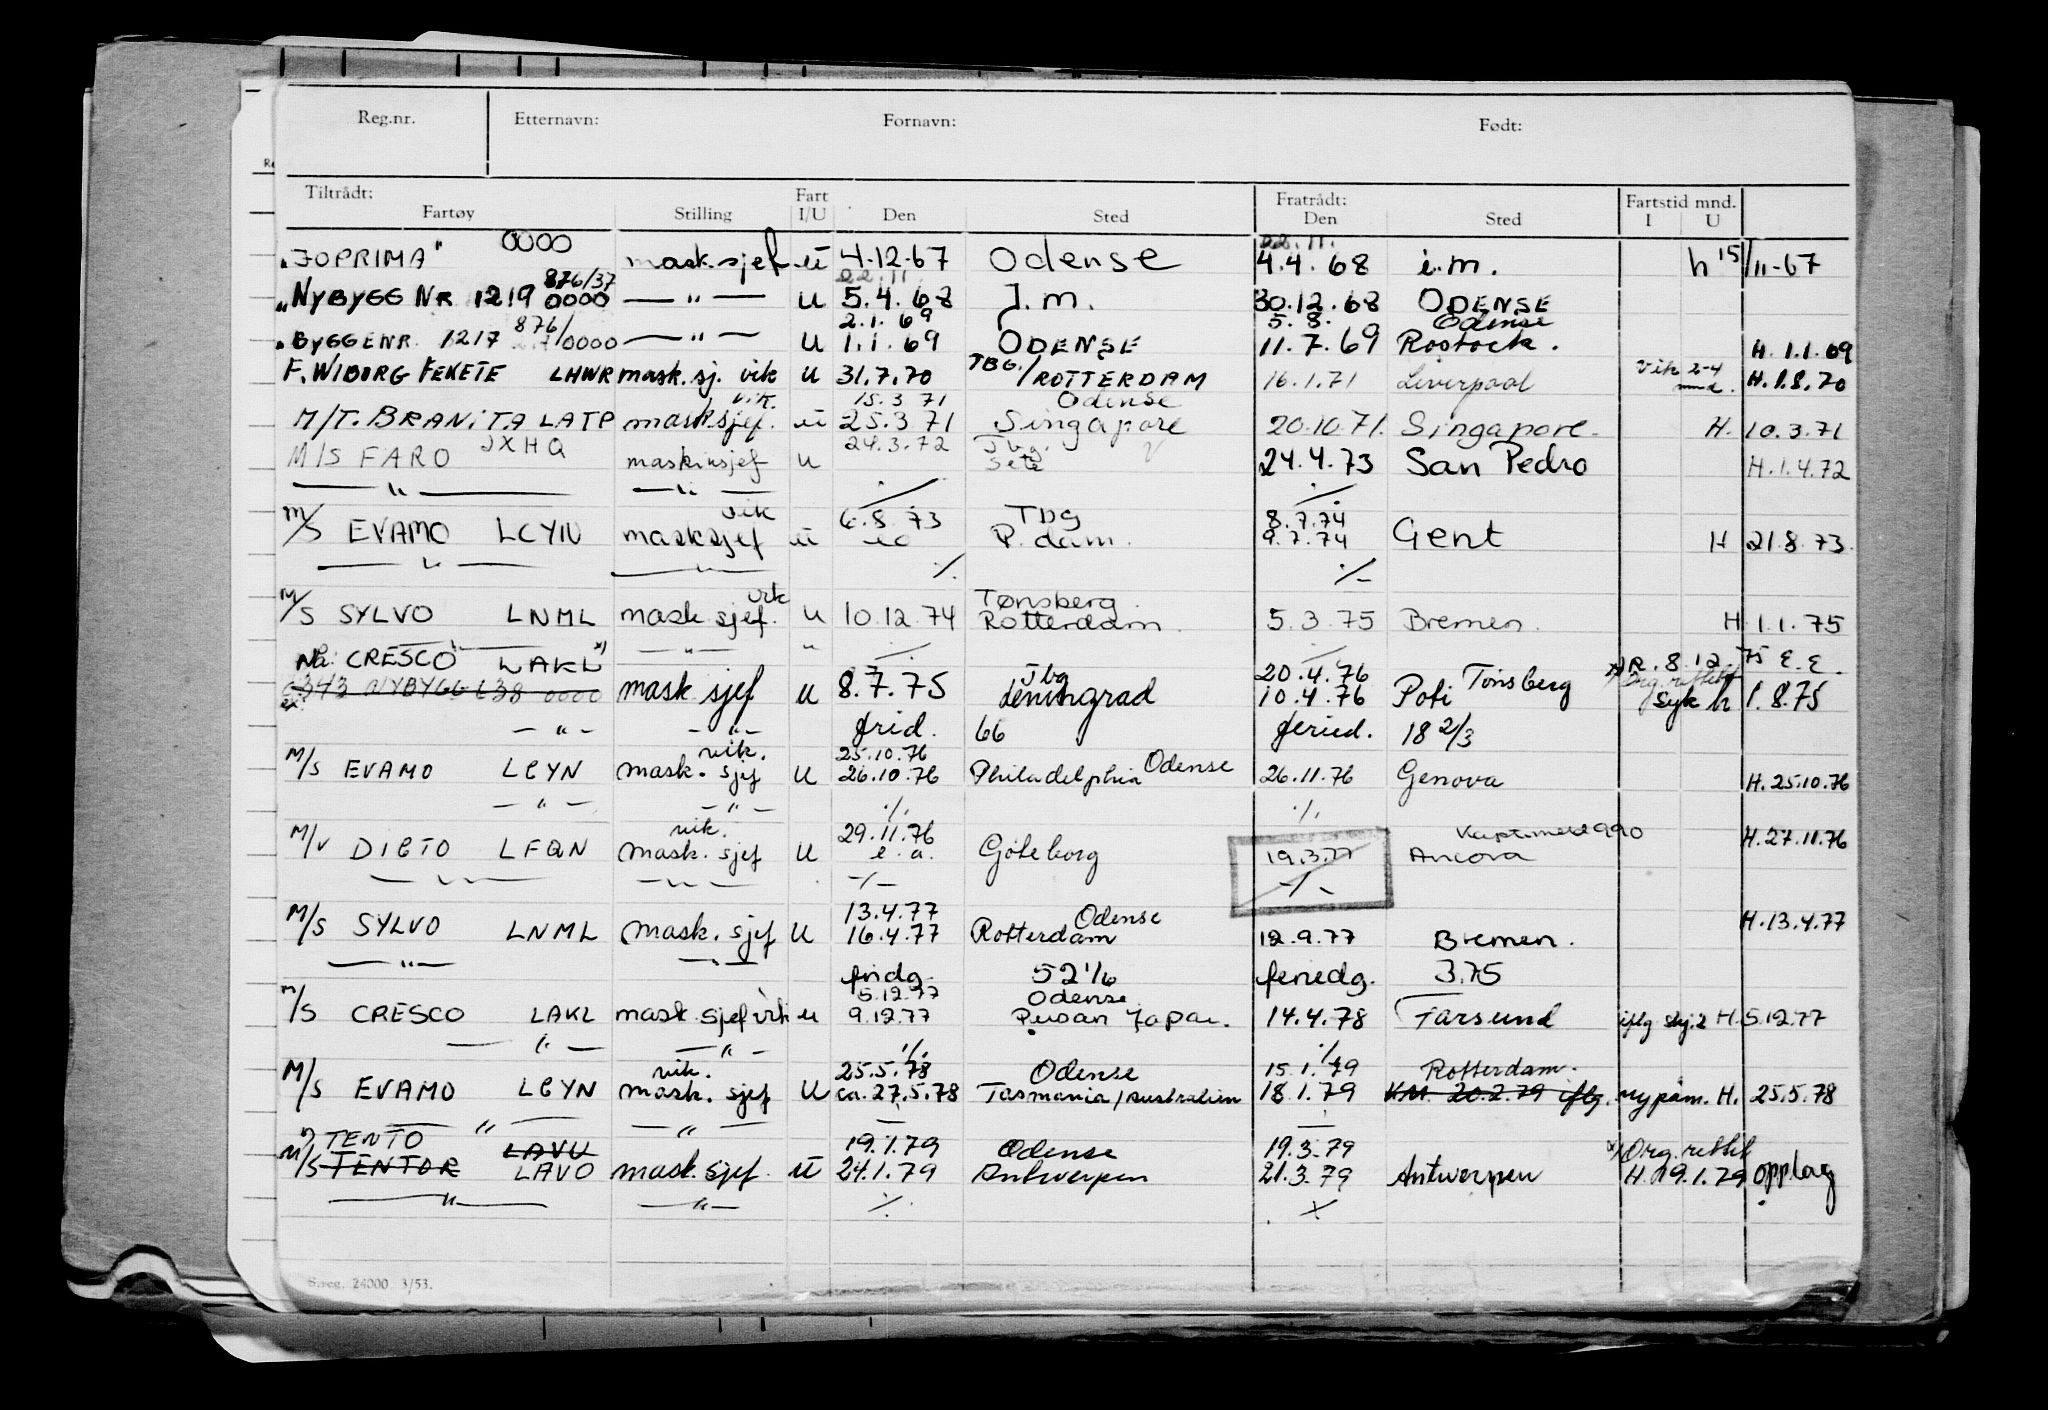 Reg.nr. Etternavn: Fornavn: Født:
Tiltrådt: Fart Fratrådt: Fartstid mnd.
Fartøy Stilling I/U Den Sted Den Sted I U
0000 22.11.
"JOPRIMA" mask.sjef ü 4.12.67 Odense 4.4.68 i.m. h 15/11-67
876/37 22.11
"NYBYGG NR 1219 0000 — " — U 5.4.68 I.m. 30.12.68 ODENSE
876/ 2.1.69 5.8. Odense
"BYGGENR. 1217 0000 — " — U 1.1.69 ODENSE 11.7.69 Rostock. H. 1.1.69
F. WIBORG FEKETE LHWR mask.sj. vik U 31.7.70 TBG./ROTTERDAM 16.1.71 Liverpool vik 2-4 mnd. H.1.8.70
vik. 15.3 71 Odense
M/T. BRANITA LATP mask.sjef. ü 25.3 71 Singapore 20.10.71. Singapore. H. 10.3.71
JXHQ 24.3.72 Tbg.
M/S FARO maskinsjef u Sete 24.4.73 San Pedro H.1.4.72
— " — — " — ./. ./.
vik 6.8.73 Tbg 8.7.74
M/S EVAMO LCYN masksjef ü P.dam. 9.7.74 Gent H 21.8.73.
— " — — " — ./. ./.
vik Tønsberg.
M/S SYLVO LNML mask sjef. u 10.12.74 Rotterdam. 5.3.75 Bremen. H.1.1.75
— " — — " — " ./. ./.
Nå: CRESCO LAKL x) Tbg 20.4.76 Tønsberg x) R. 8.12 75 E.E.
NYBYGG 638 0000 mask sjef u 8.7.75 Leningrad 10.4.76 Poti syk h 1.8.75
— " — — " — frid. 66 feried. 18 2/3
vik. 25.10.76 Odense
M/S EVAMO LCYN mask. sjef U 26.10.76 Philadelphia 26.11.76 Genova H. 25.10.76
— " — — " — ./. ./.
vik. 29.11.76 H.27.11.76
M/V DICTO LFQN mask. sjef U e.a. Göteborg 19.3.77 Ancona
— " — — " — -/- -/-
13.4.77 Odense H.13.4.77
M/S SYLVO LNML mask. sjef U 16.4.77 Rotterdam 12.9.77 Bremen.
— " — — " — fridg. 52 1/6 feriedg. 3.75
5.12.77 Odense.
M/S CRESCO LAKL mask sjef vik u 9.12.77 Japan. 14.4.78 Farsund iflg skj.2 H.5.12.77
— " — — " — ./. ./.
vik. 25.5.78 Odense 15.1.79 Rotterdam.
M/S EVAMO LCYN mask. sjef U ca.27.5.78 Tasmania/Australien 18.1.79 KM. 20.2.79 iflg. nypåm. H. 25.5.78
— " — — " — — —
x) TENTO LAVU 19.1.79 Odense 19.3.79 x) Org.rettet
M/S TENTOR LAVO mask.sjef. ü 24.1.79 Antwerpen 21.3.79 Antwerpen H.19.1.79 opplag
— " — — " — ./. ./.
S.reg. 24000 3/53.